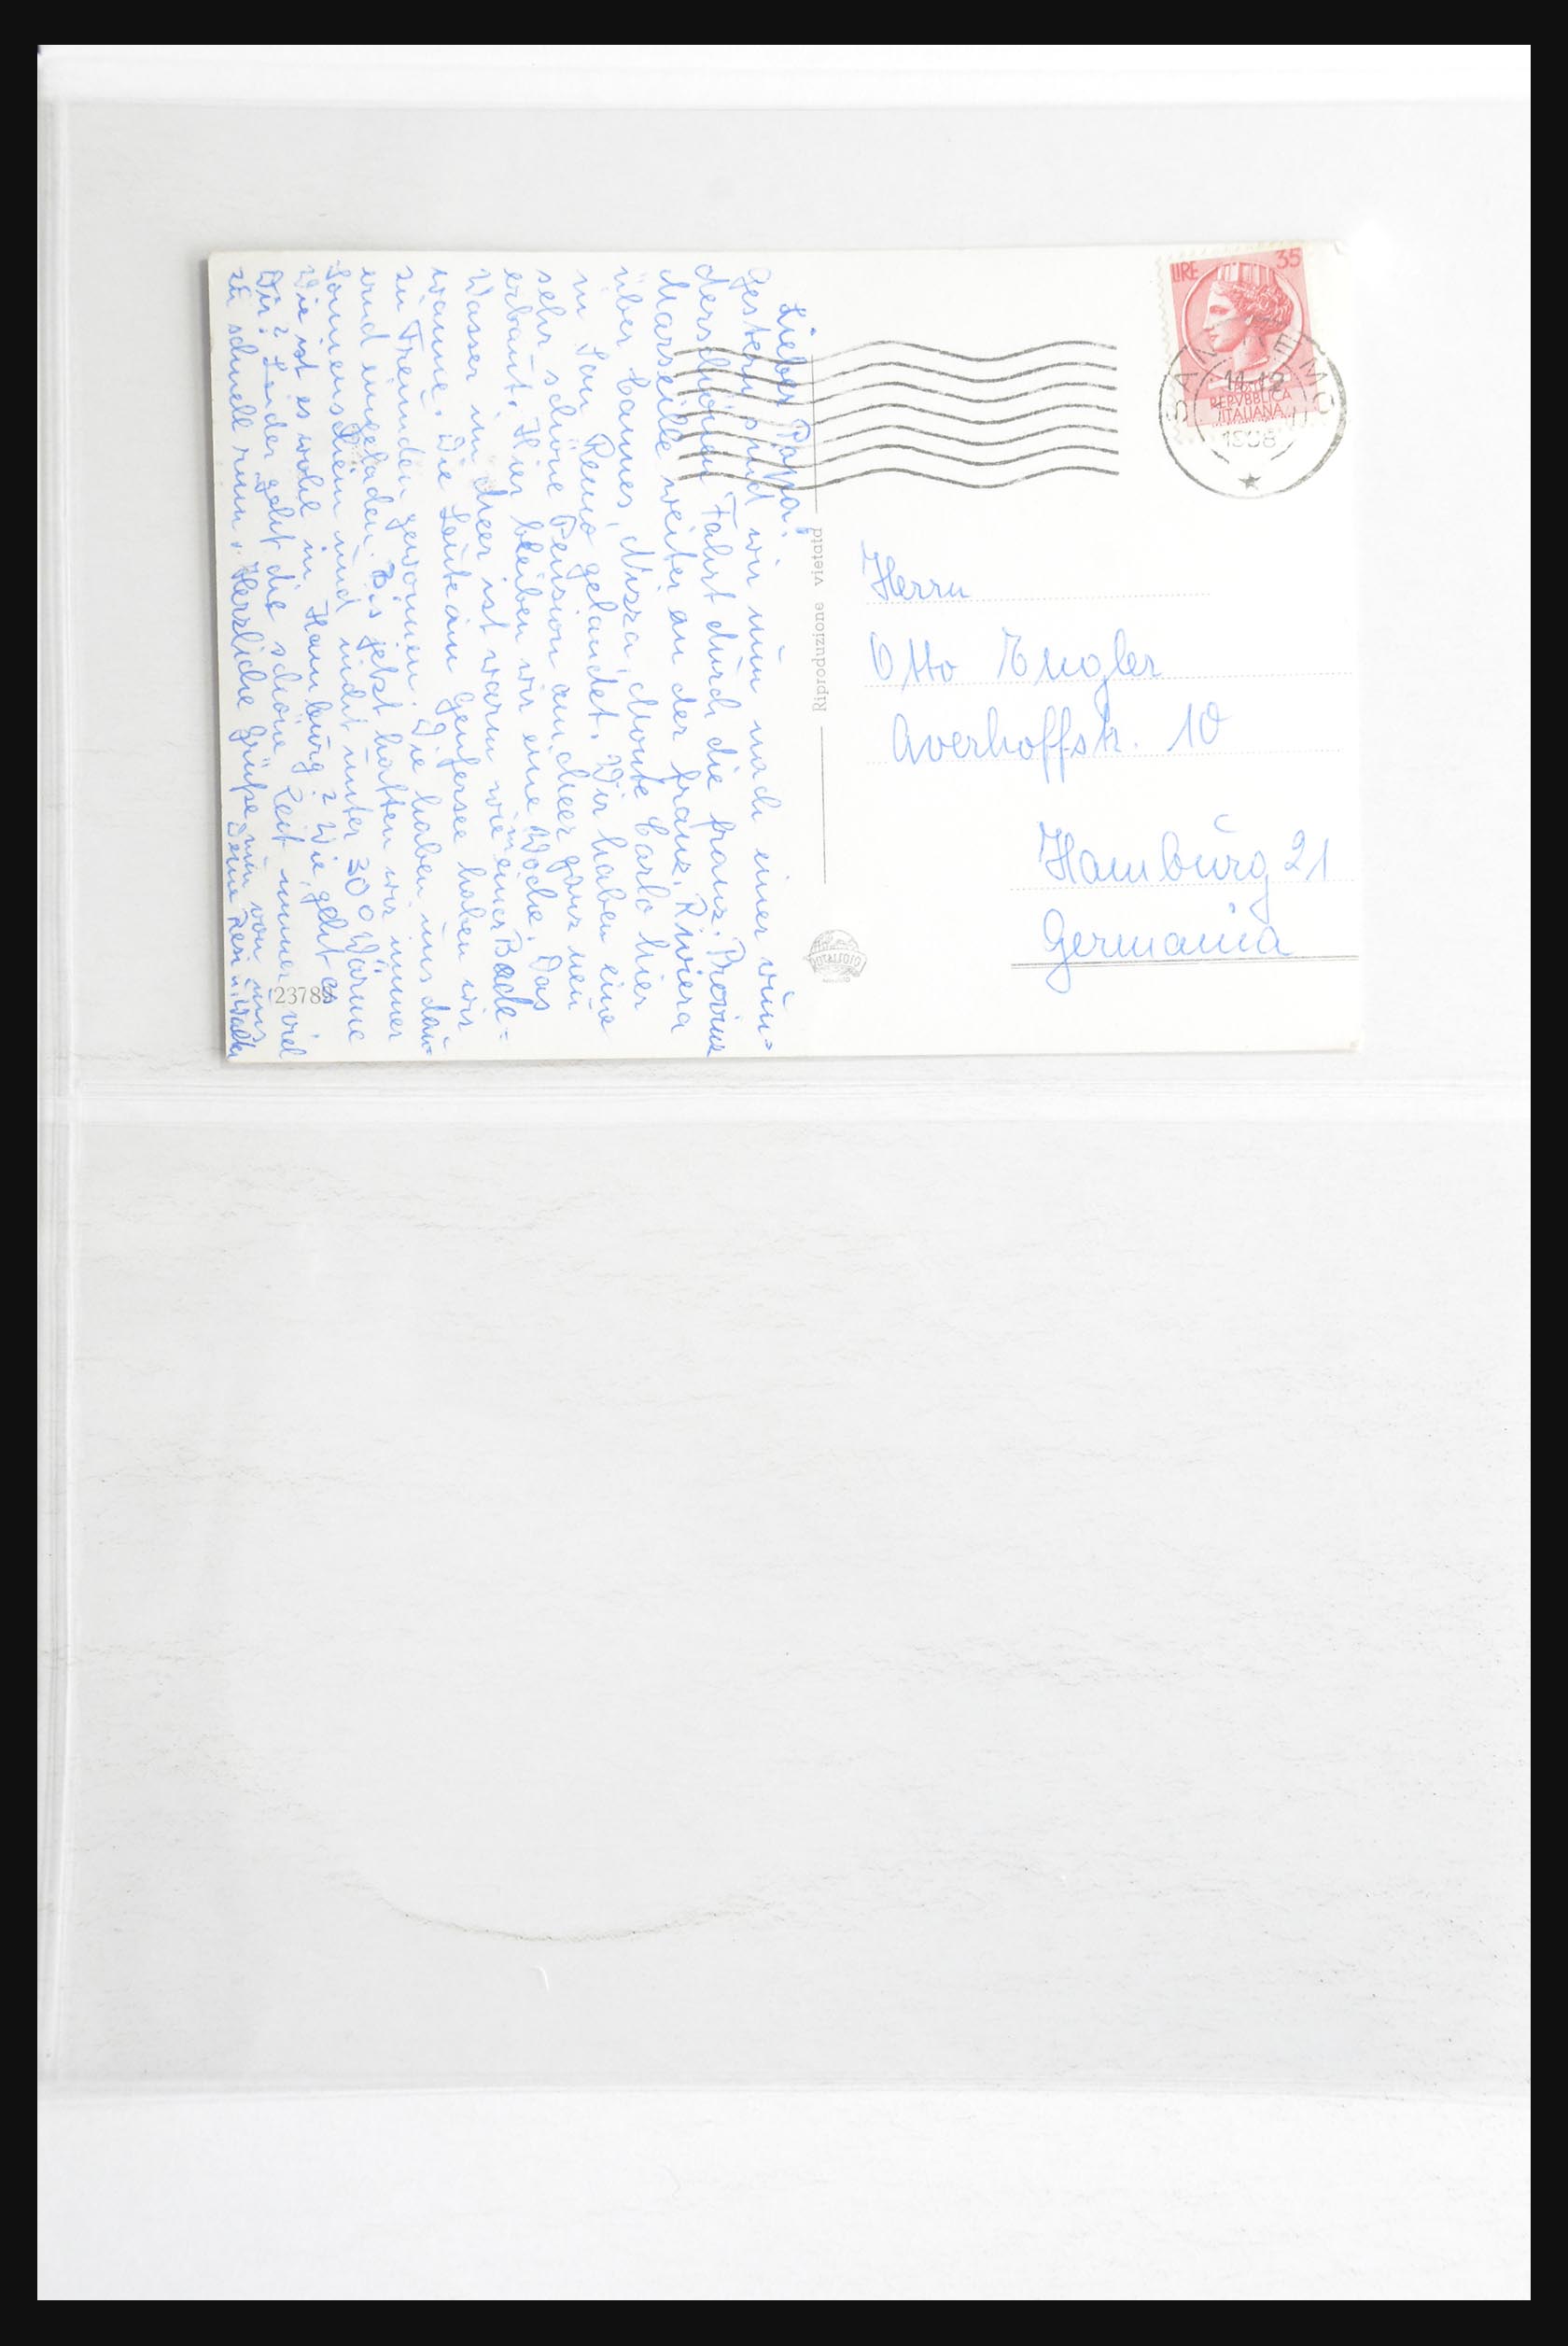 Lieber Pappa!
Gestern sind wir nun nach einer wun-
derschönen Fahrt durch die franz. Provinz
Marseille weiter an der franz. Riviera
über Cannes, Nizza, Monte Carlo hier
in San Remo gelandet. Wir haben eine
sehr schöne Pension am Meer ganz neu
erbaut. Hier bleiben wir eine Woche. Das
Wasser im Meer ist warm wie in einer Bade-
wanne. Die Leute am Genfersee haben wir
zu Freunden gewonnen. Die haben uns dau-
ernd eingeladen. Bis jetzt hatten wir immer
Sonnenschein und nicht unter 30° Wärme
Wie ist es wohl in Hamburg? Wie geht es
Dir? Leider geht die schöne Zeit immer viel
zu schnell rum. Herzliche Grüße nun von uns
Deine Resi u. Walter
23789
Riproduzione vietata
TOTALFOTO
LIRE 35
REPVBBLICA
ITALIANA
SAN REMO
Herrn
Otto Engler
Averhoffstr. 10
Hamburg 21
Germania